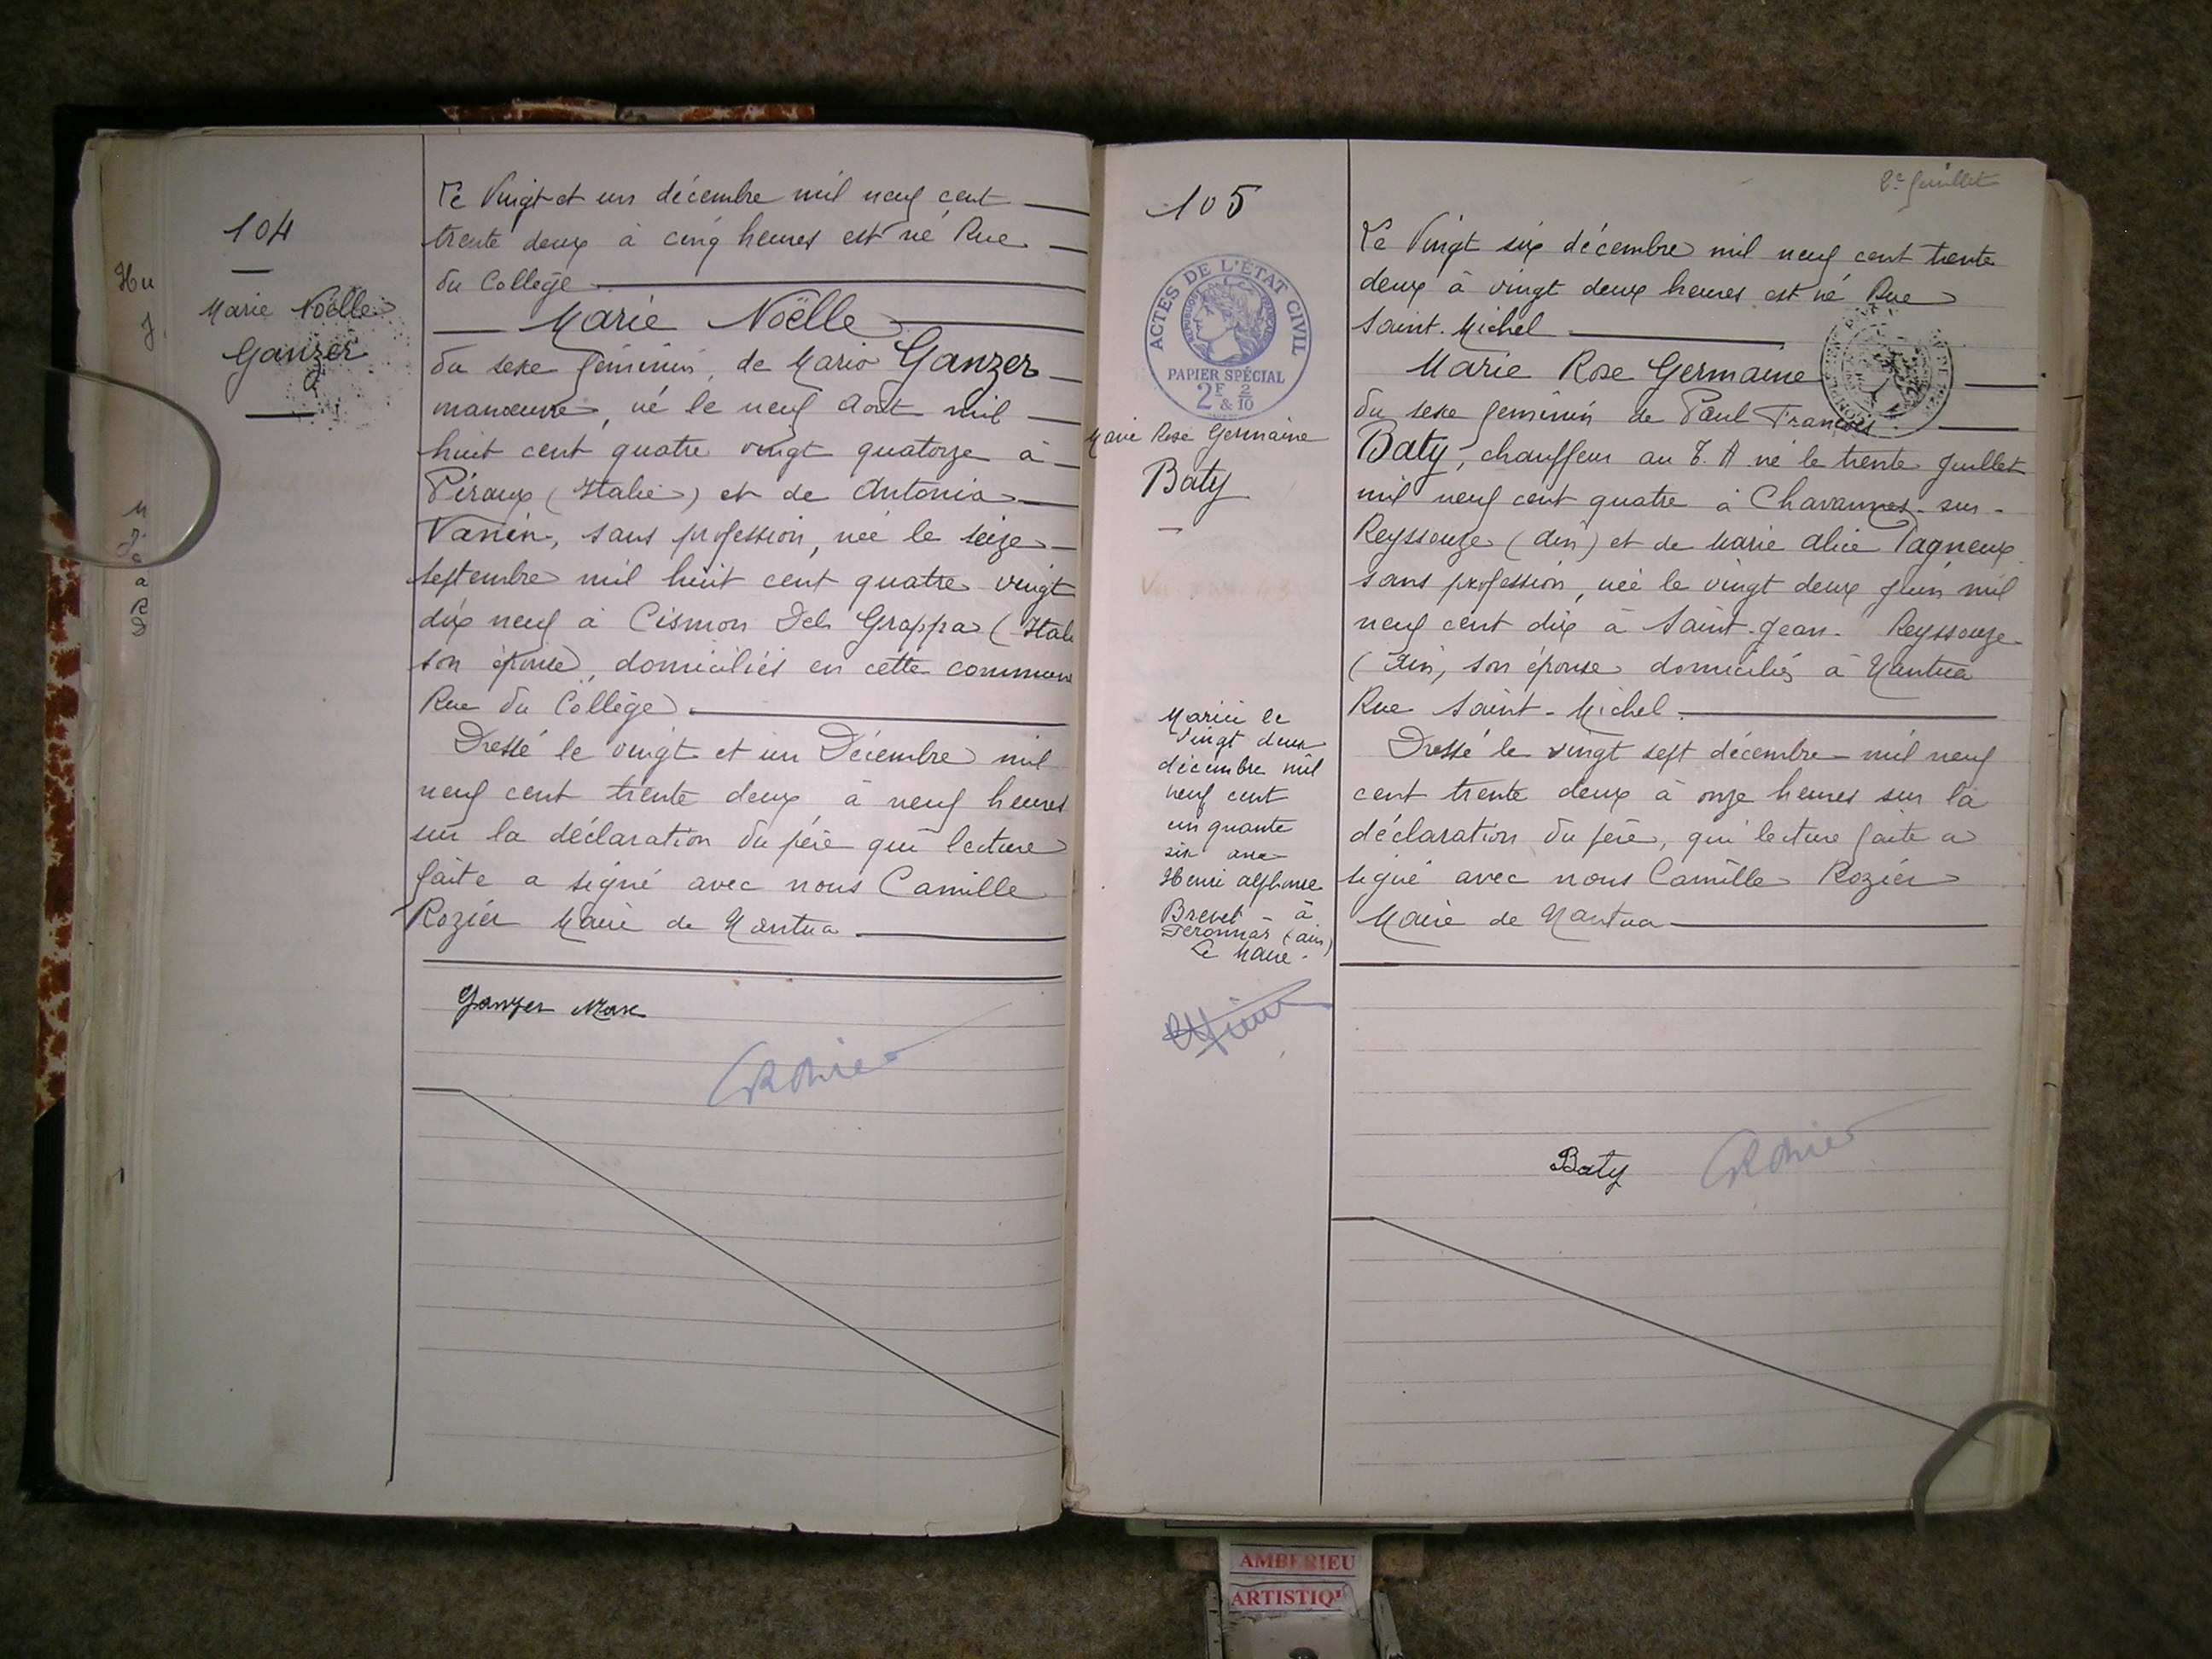 104
Marie Noëlle
Ganzer
Le Vingt et un décembre mil neuf cent
trente deux à cinq heures est né Rue
du Collège
Marie Noëlle
du sexe féminin, de Mario Ganzer
manœuvre, né le neuf Août mil
huit cent quatre vingt quatorze à
(Italie) et de Antonia
Vanin, sans profession, née le seize
septembre mil huit cent quatre vingt
dix neuf à Cismon Del Grappa (Itali
son épouse, domiciliés en cette commune
Rue du Collège.
Dressé le vingt et un Décembre mil
neuf cent trente deux à neuf heures
sur la déclaration du père qui lecture
faite a signé avec nous Camille
Rozier Maire de Nantua.
Ganzer
CRozier
105
ACTES DE L'ÉTAT CIVIL
PAPIER SPÉCIAL
2F & 2/10
Marie Rose Germaine
Baty
Mariée le
vingt deux
décembre mil
neuf cent
cinquante
six avec
Henri Alphonse
Brevet - à
Peronnas (ain)
Le Maire.
2e feuillet
Le Vingt six décembre mil neuf cent trente
deux à vingt deux heures est né Rue
Saint-Michel
Marie Rose Germaine
du sexe féminin de Paul François
Baty, chauffeur au T. A né le trente Juillet
mil neuf cent quatre à Chavannes-sur-
Reyssouze (Ain) et de Marie Alice Pagneux
sans profession, née le vingt deux Juin mil
neuf cent dix à Saint-Jean-Reyssouze
(Ain, son épouse domiciliés à Nantua
Rue Saint-Michel.
Dressé le vingt sept décembre mil neuf
cent trente deux à onze heures sur la
déclaration du père, qui lecture faite a
signé avec nous Camille Rozier
Maire de Nantua
Baty
CRozier
AMBERIEU
ARTISTIQ